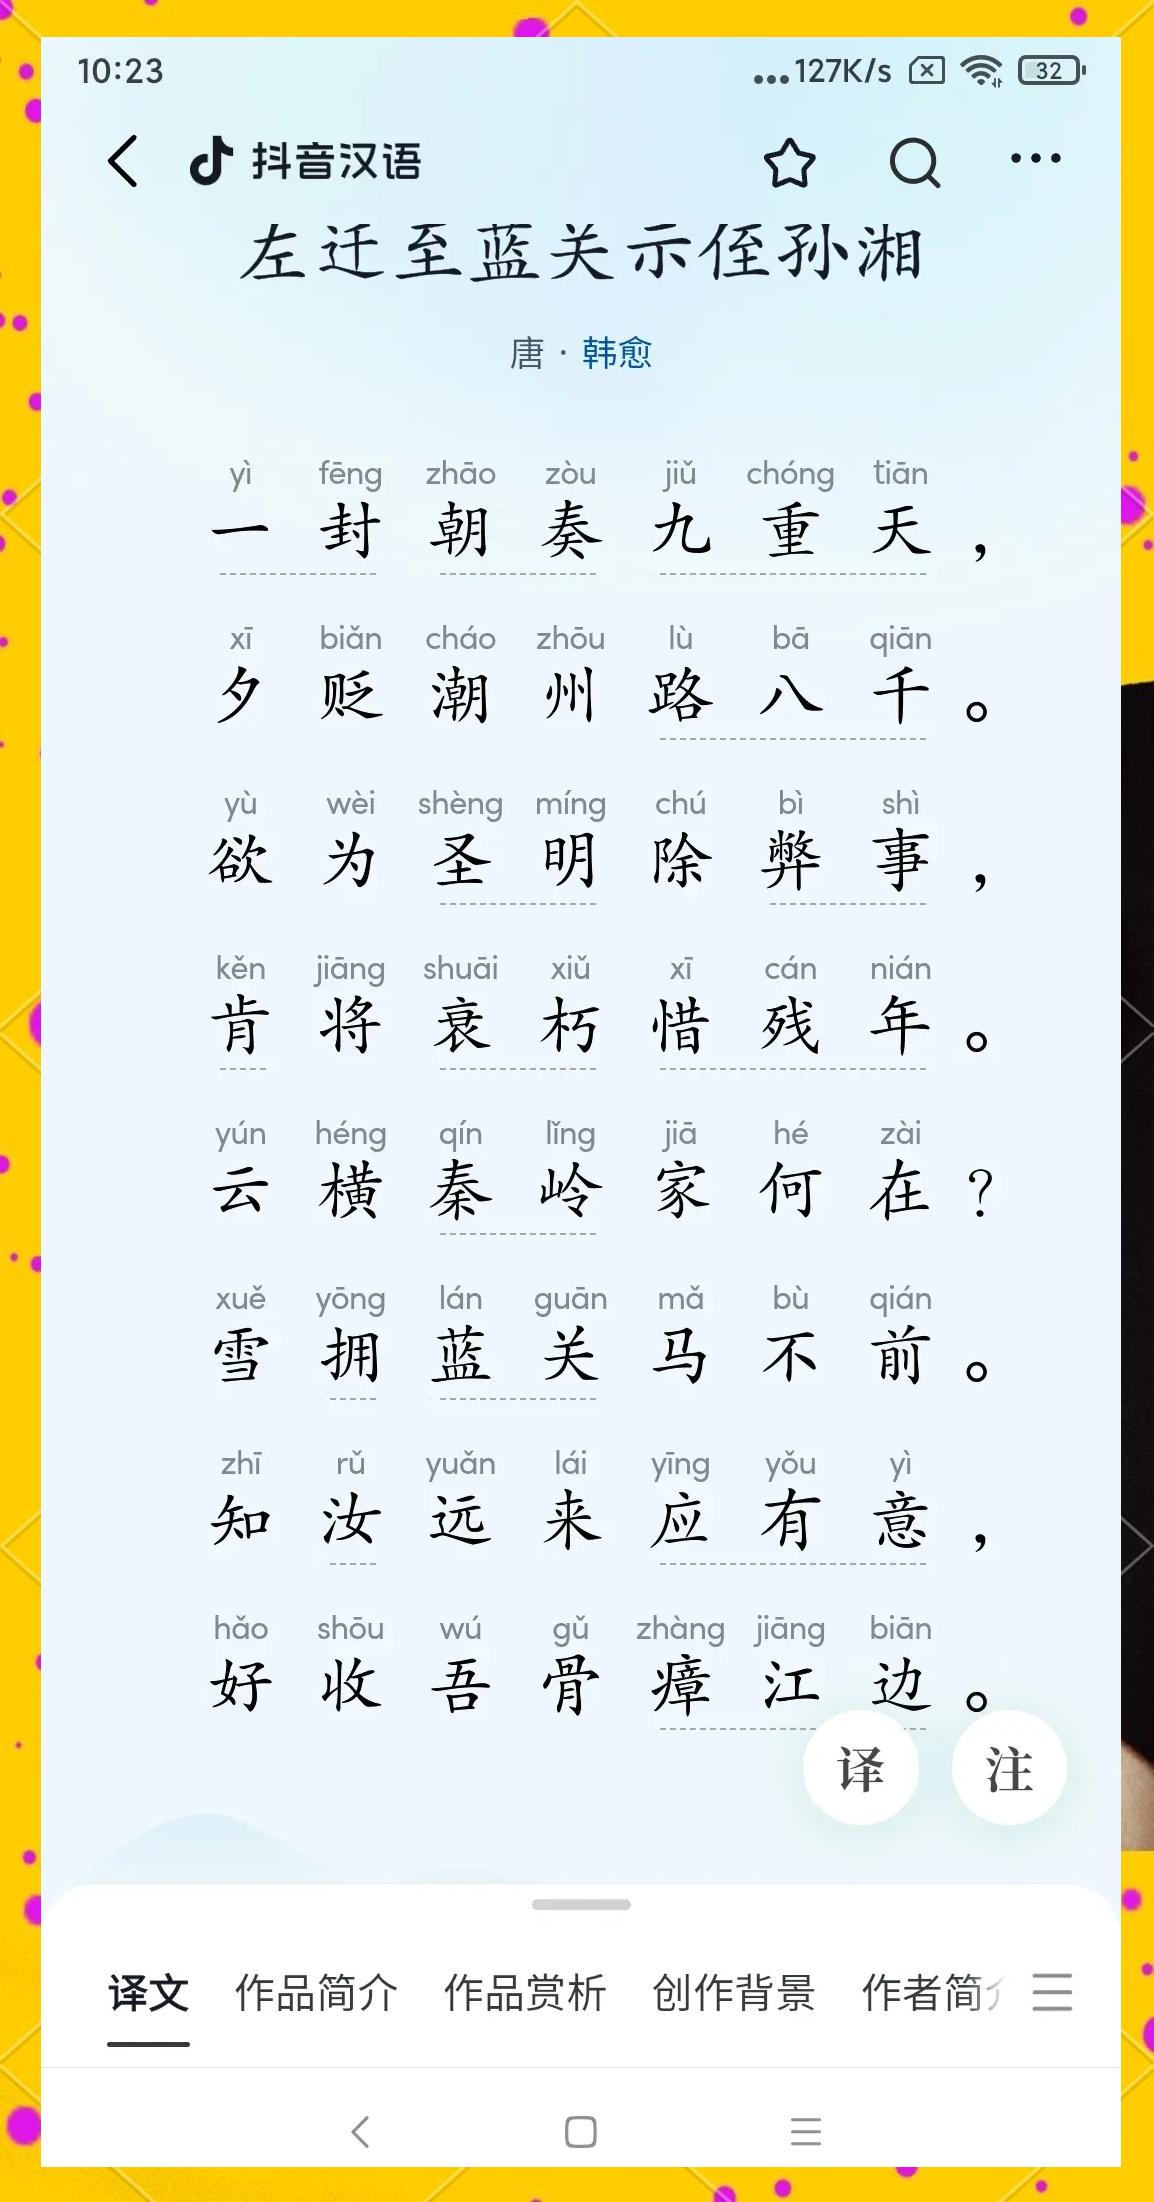 10:23 ...127K/s 32
抖音汉语
左迁至蓝关示侄孙湘
唐·韩愈
yì fēng zhāo zòu jiǔ chóng tiān
一封朝奏九重天，
xī biǎn cháo zhōu lù bā qiān
夕贬潮州路八千。
yù wèi shèng míng chú bì shì
欲为圣明除弊事，
kěn jiāng shuāi xiǔ xī cán nián
肯将衰朽惜残年。
yún héng qín lǐng jiā hé zài
云横秦岭家何在？
xuě yōng lán guān mǎ bù qián
雪拥蓝关马不前。
zhī rǔ yuǎn lái yīng yǒu yì
知汝远来应有意，
hǎo shōu wú gǔ zhàng jiāng biān
好收吾骨瘴江边。
译 注
译文 作品简介 作品赏析 创作背景 作者简介